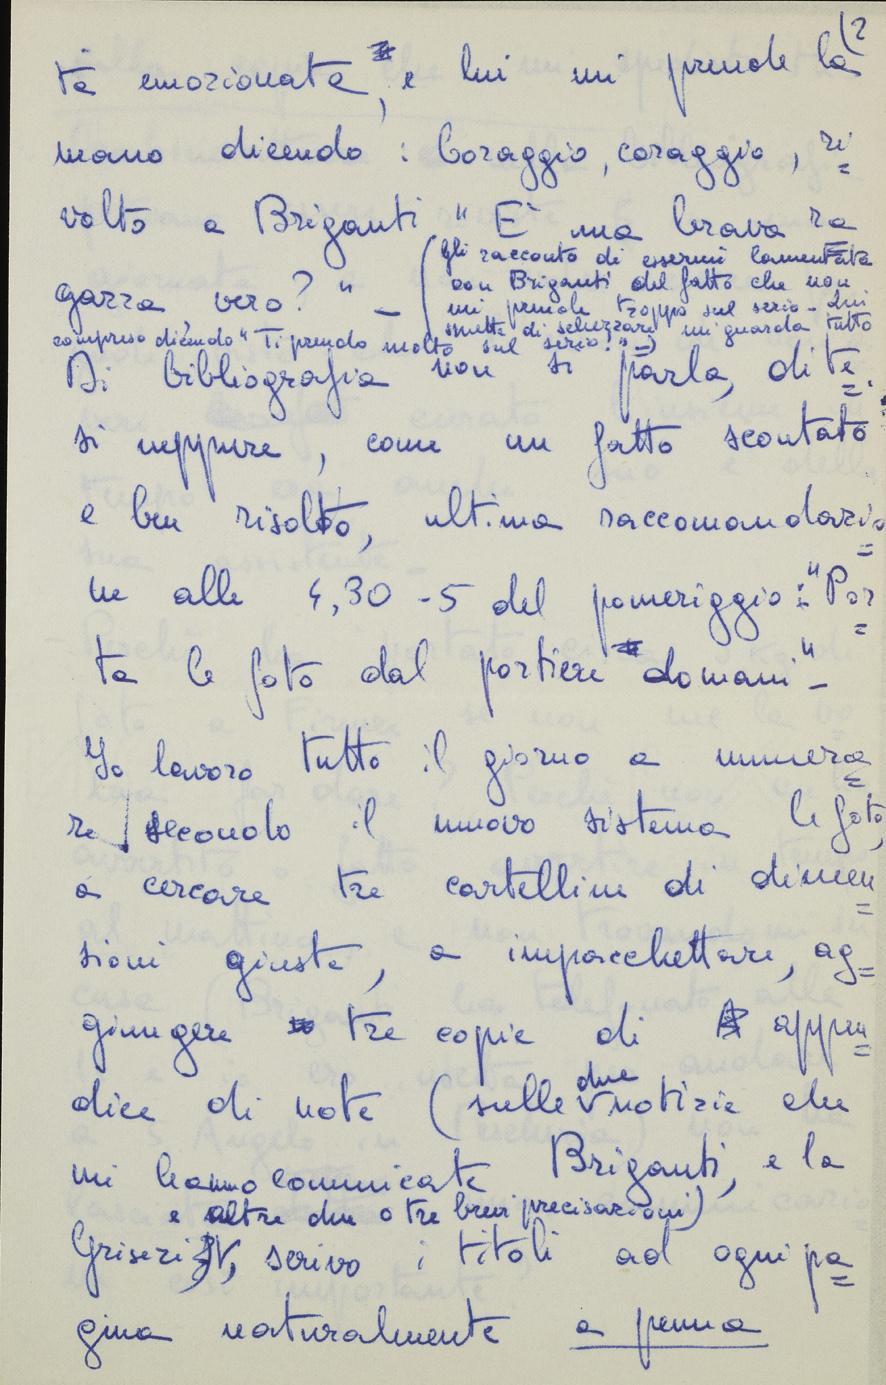 12
tà emozionata, e lui mi prende la
mano dicendo: Coraggio, coraggio, ri=
volto a Briganti "È una brava ra
gazza, vero?" - (gli racconto di essermi lamentata
con Briganti del fatto che non
mi prende troppo sul serio - lui
smette di scherzare mi guarda tutto
compreso dicendo "Ti prendo molto sul serio!" -)
Di bibliografia non si parla, dite=
si neppure, come un fatto scontato
e ben risolto, ultima raccomandazio=
ne alle 4,30 - 5 del pomeriggio: "Por=
ta le foto dal portiere domani" -
Io lavoro tutto il giorno a numera=
re secondo il nuovo sistema le foto,
a cercare tre cartelline di dimen=
sioni giuste, a impacchettare, ag=
giungere tre copie di appen=
dice di note (sulle due notizie che
mi hanno comunicate Briganti, e la
e altre due o tre brevi precisazioni)
Griseri, scrivo i titoli ad ogni pa=
gina naturalmente a penna